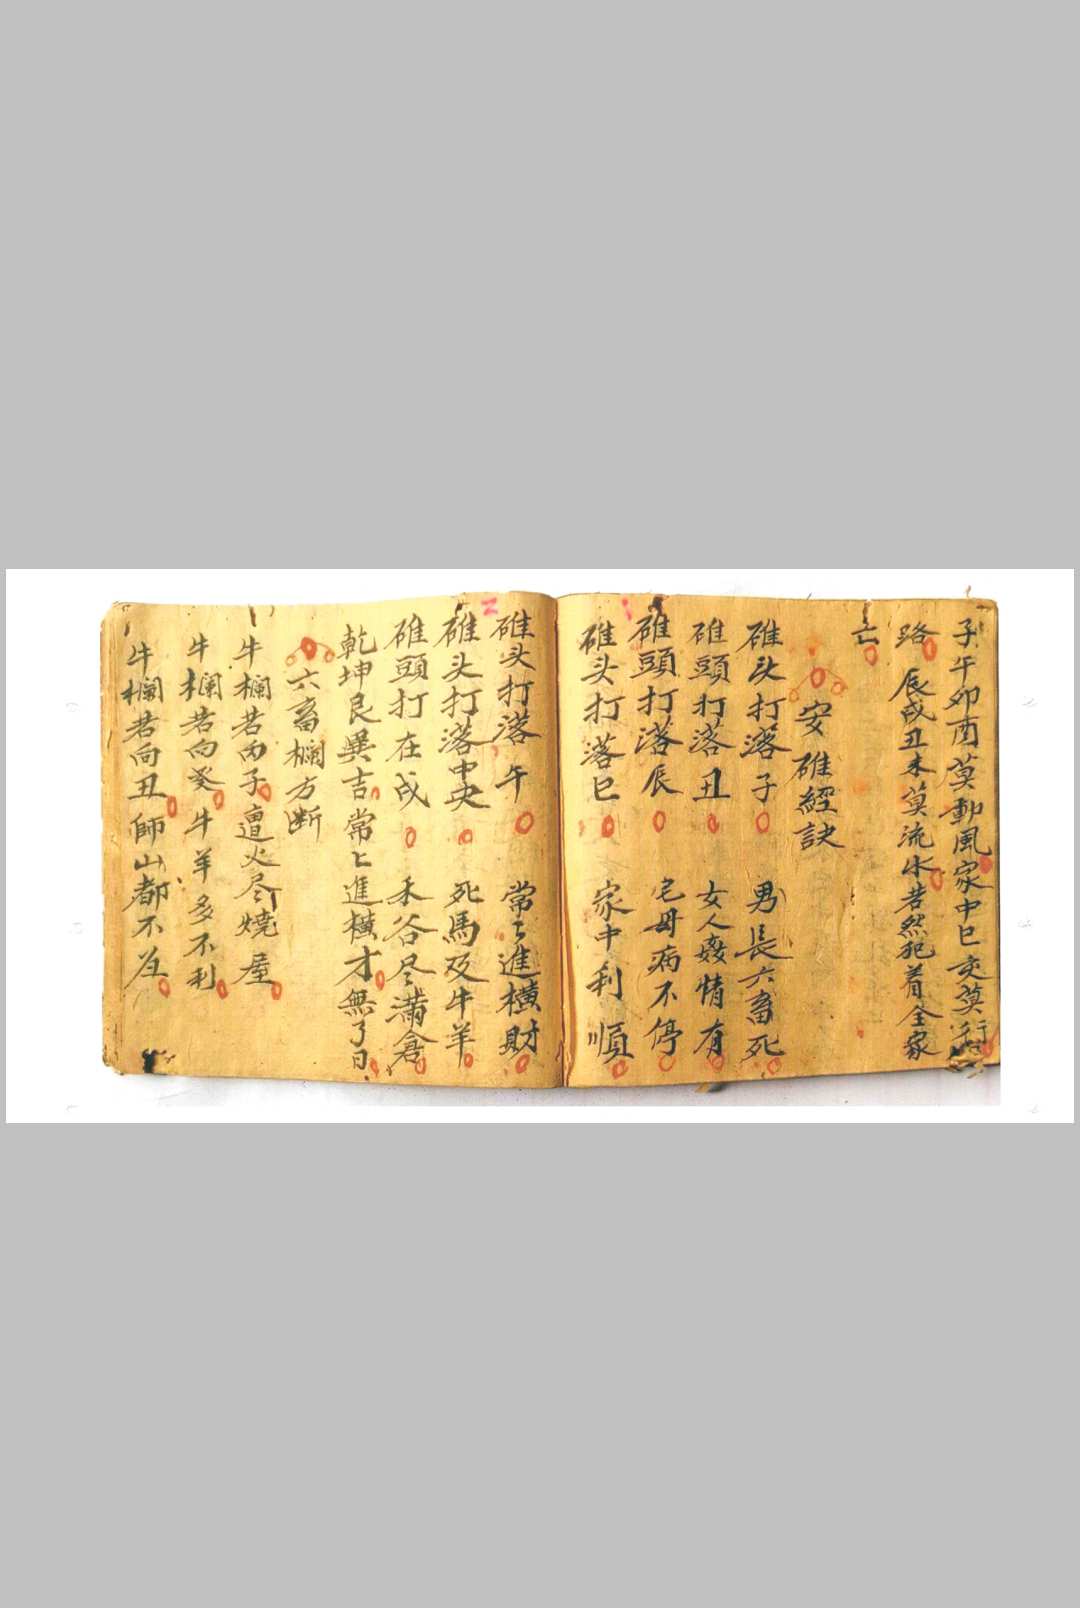 子午卯酉莫動風家中巳亥莫行
路辰戌丑未莫流水若然犯着全家
亡
安碓經訣
碓头打落子 男長六畜死
碓頭打落丑 女人姦情有
碓頭打落辰 宅母病不停
碓头打落巳 家中利順
碓头打落午 常〻進横財
碓头打落中央 死馬及牛羊
碓頭打在戌 禾谷尽滿倉
乾坤艮巽吉常〻進横才無了日
六畜欄方断
牛欄若向子遭火尽燒屋
牛欄若向癸牛羊多不利
牛欄若向丑師山都不